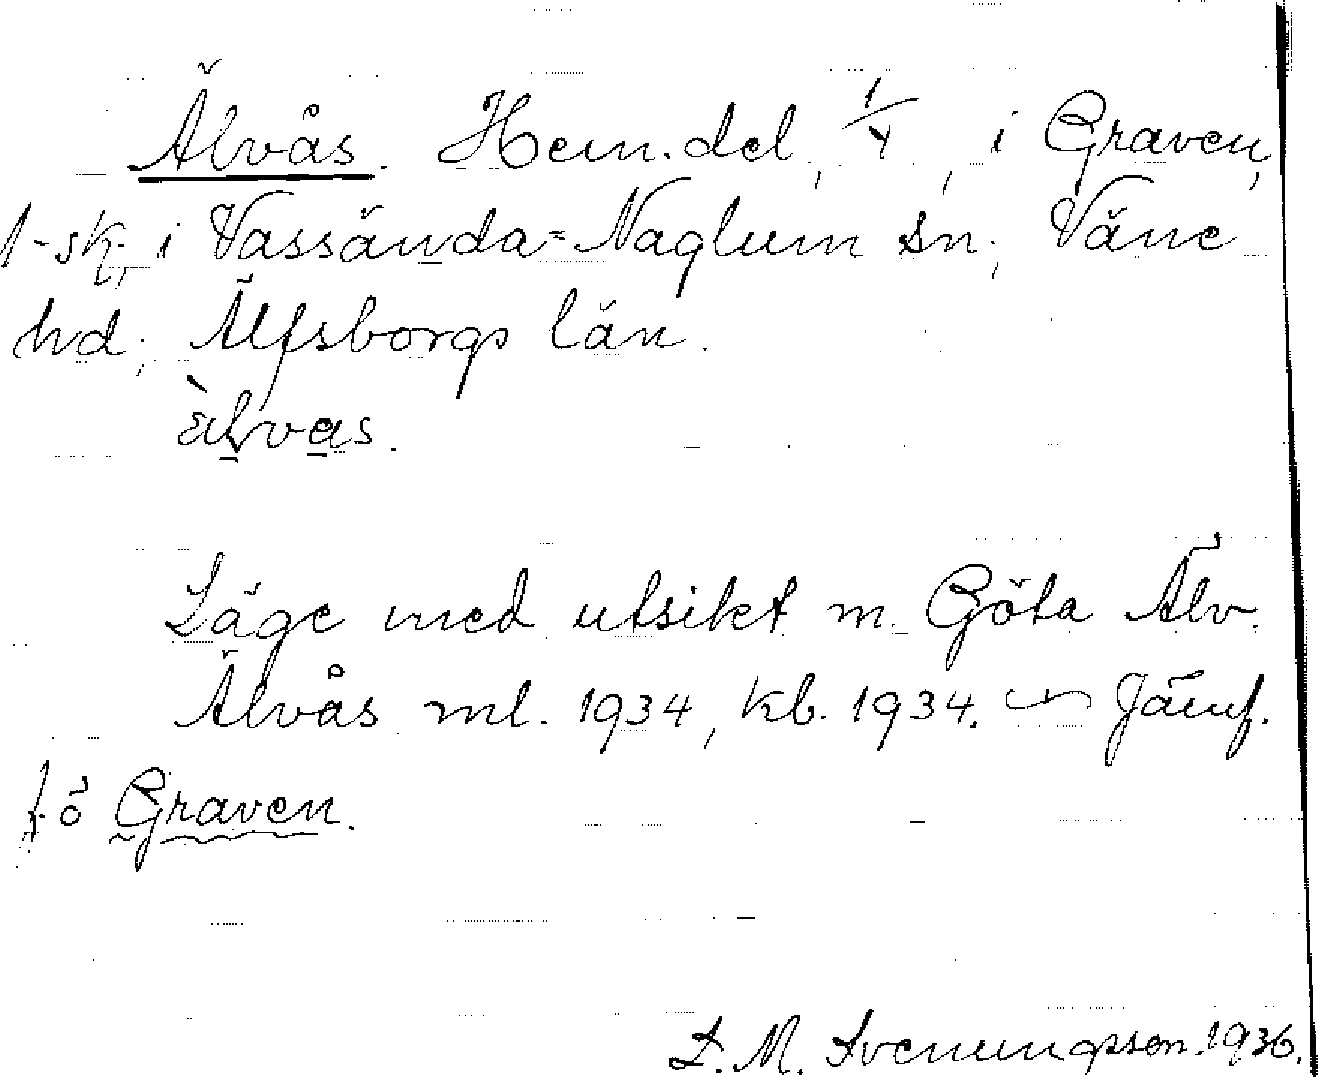 Älvås. Hem.del, 1/4, i Graven,
1-sk., i Vassända-Naglum sn; Väne
hd; Älfsborgs län.
àlvas.
Läge med utsikt m. Göta Älv.
Älvås ml. 1934, kb. 1934. ~ Jämf.
fö Graven.
S. M. Svenungsson. 1936.